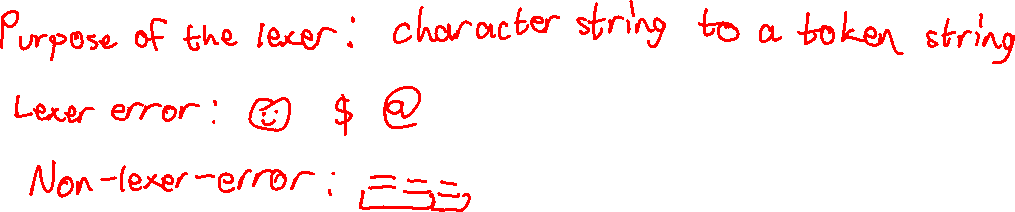 Purpose of the lexer: character string to a token string
Lexer error: ☺ $ @
Non-lexer-error: ===